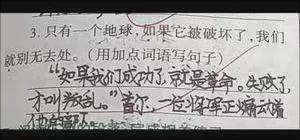 3. 只有一个地球,如果它被破坏了,我们
就别无去处。(用加点词语写句子)
“如果我们成功了,就是革命。失败了,
才叫叛乱。”首尔,一位将军正煽动着
他的部下